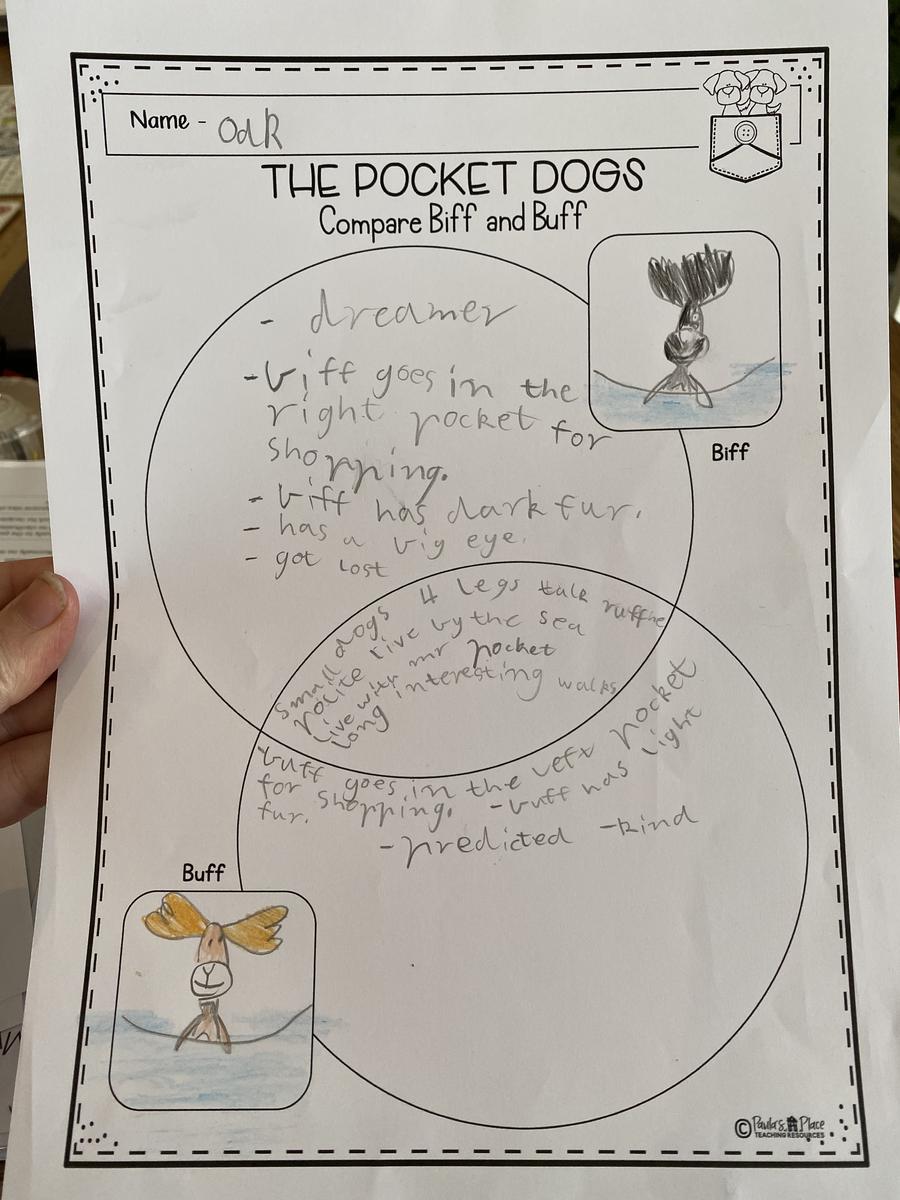 Name - Oak
THE POCKET DOGS
Compare Biff and Buff
- dreamer
- biff goes in the
right pocket for
shopping.
- biff has dark fur.
- has a big eye.
- got lost
Biff
small dogs 4 legs talk
polite live by the sea
live with mr pocket
long interesting walks
buff goes in the left pocket
for shopping. - buff has light
fur.
- predicted - kind
Buff
© Paula's Place
TEACHING RESOURCES